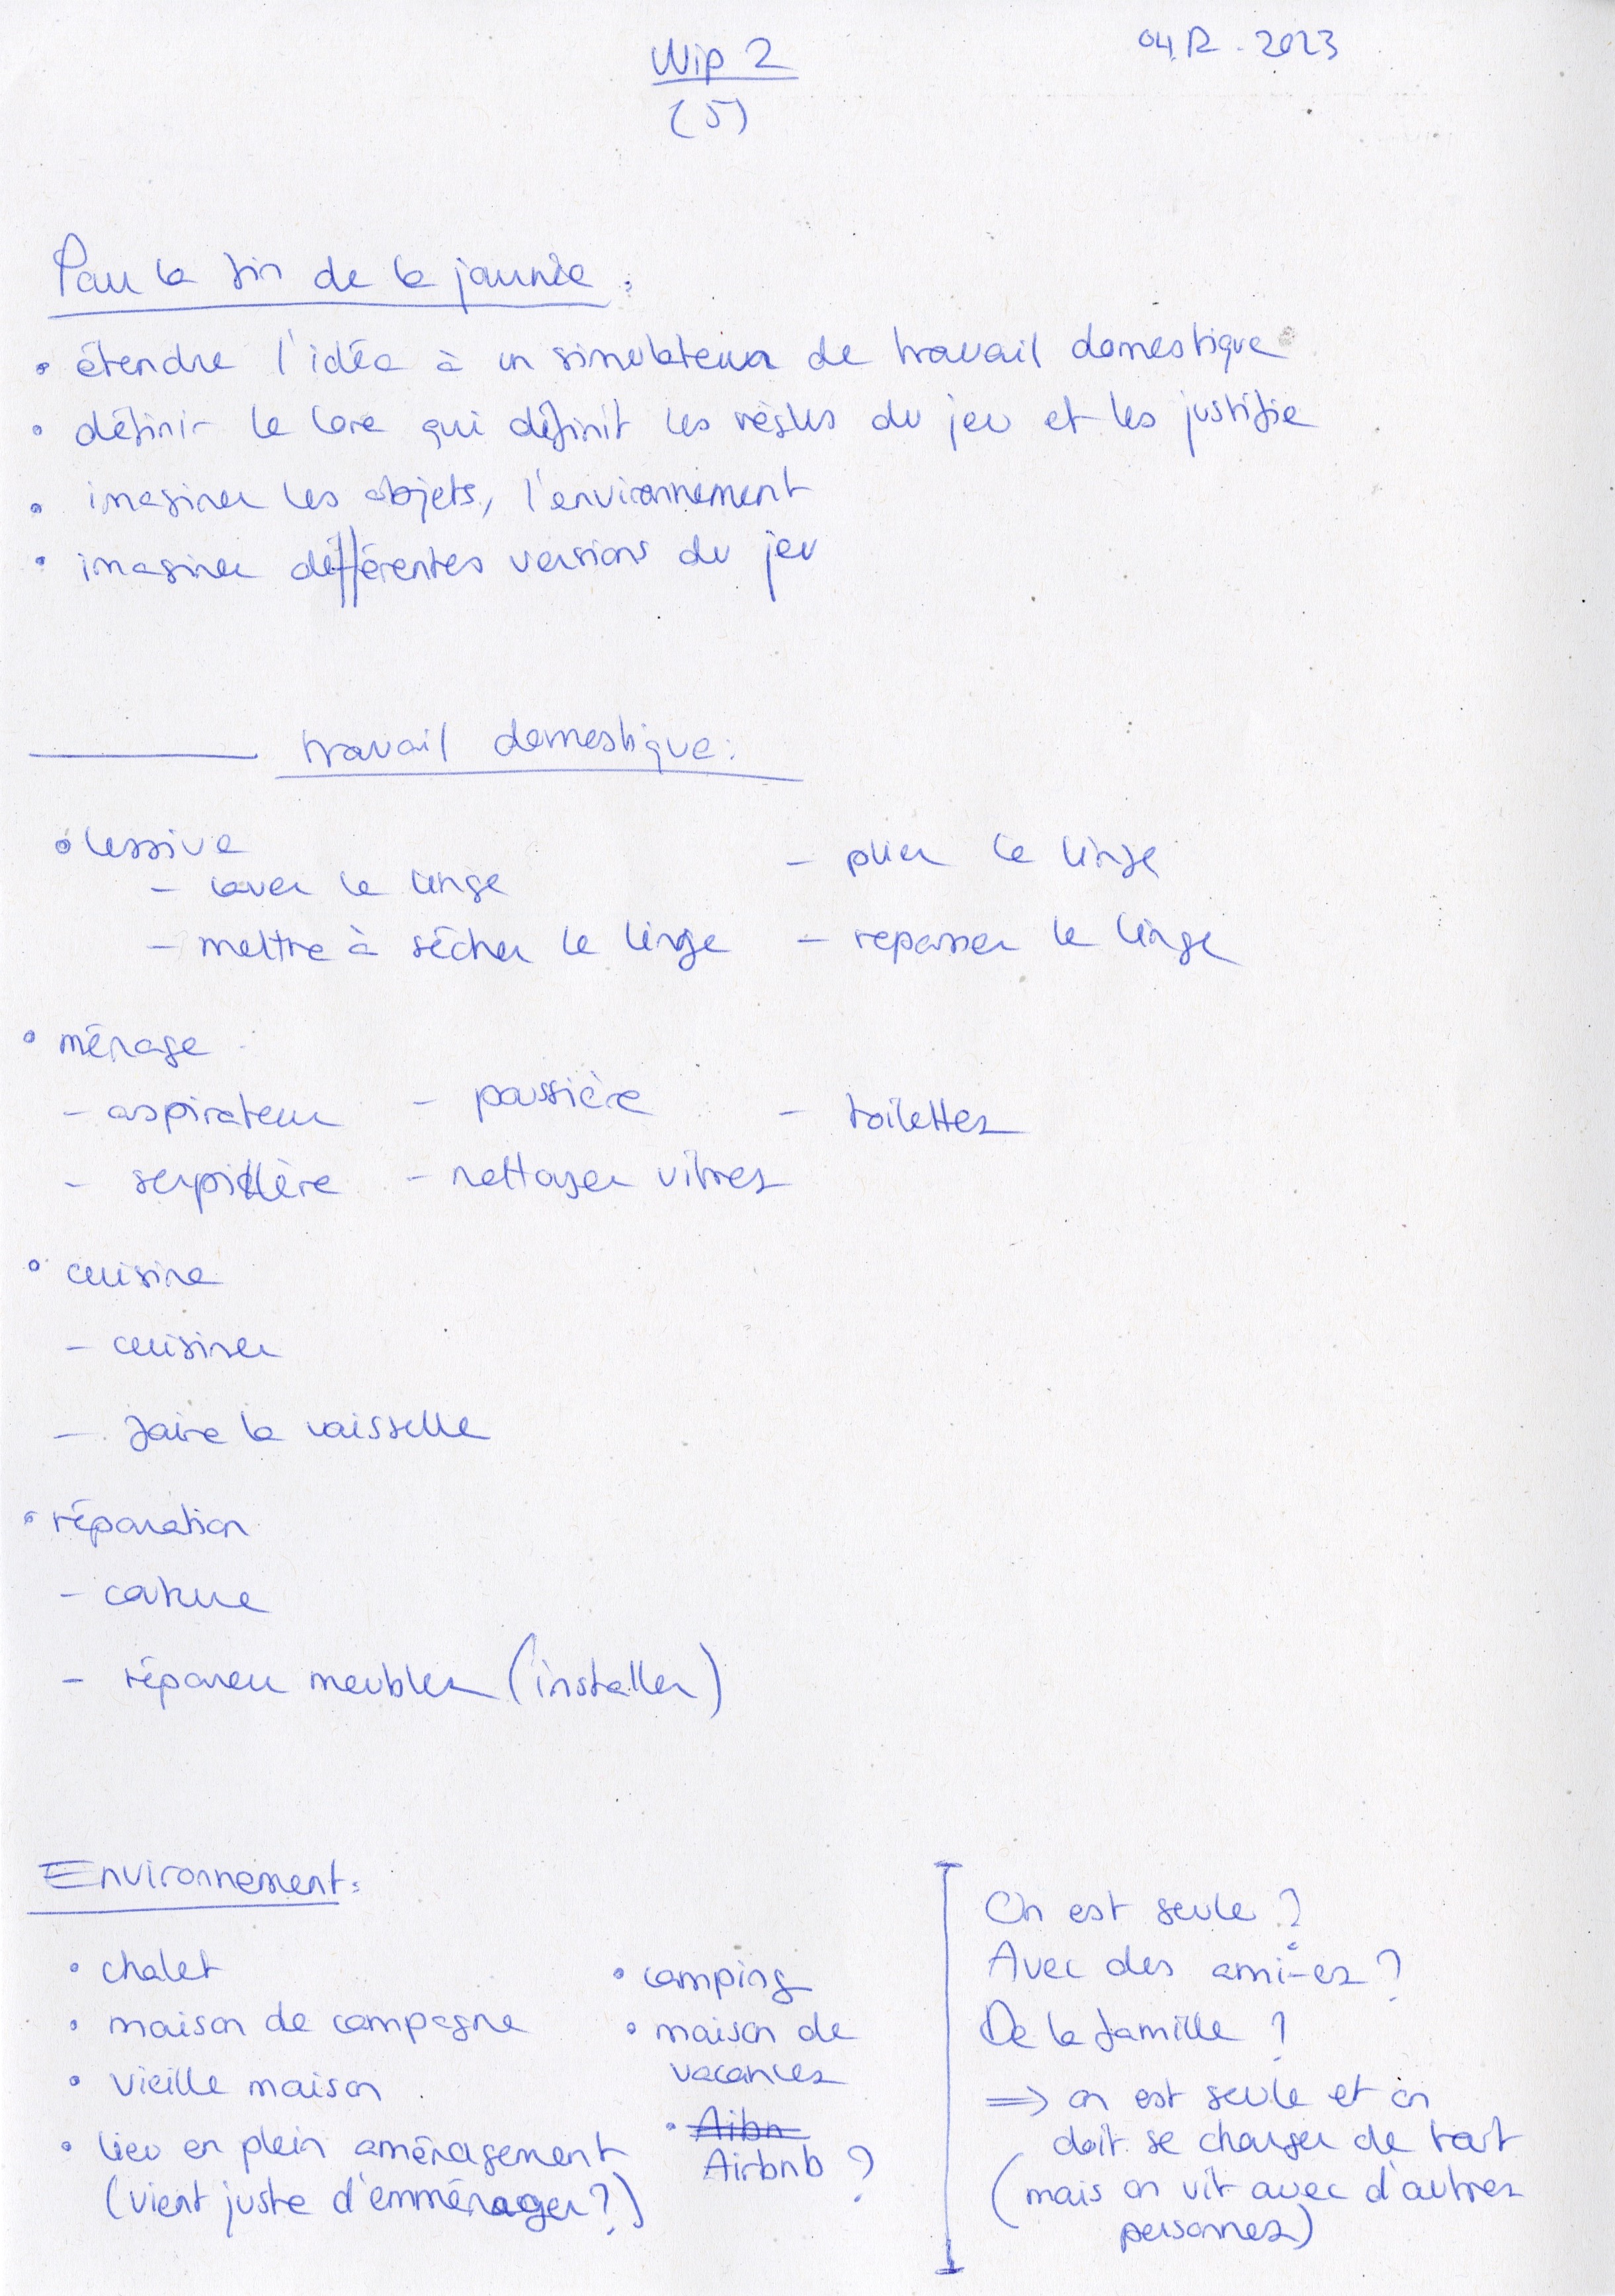 Wip 2
04.12.2023
(5)
Pour la fin de la journée :
• étendre l'idée à un simulateur de travail domestique
• définir le lore qui définit les règles du jeu et les justifie
• imaginer les objets, l'environnement
• imaginer différentes versions du jeu
travail domestique :
• lessive
- laver le linge
- plier le linge
- mettre à sécher le linge
- repasser le linge
• ménage
- aspirateur
- poussière
- toilettes
- serpillère
- nettoyer vitres
• cuisine
- cuisiner
- faire la vaisselle
• réparation
- couture
- réparer meubles (installer)
Environnement :
• chalet
• maison de campagne
• vieille maison
• lieu en plein aménagement
(vient juste d'emménager ?)
• camping
• maison de
vacances
• Aibn
Airbnb ?
On est seule ?
Avec des ami-es ?
De la famille ?
=> on est seule et on
doit se charger de tout
(mais on vit avec d'autres
personnes)